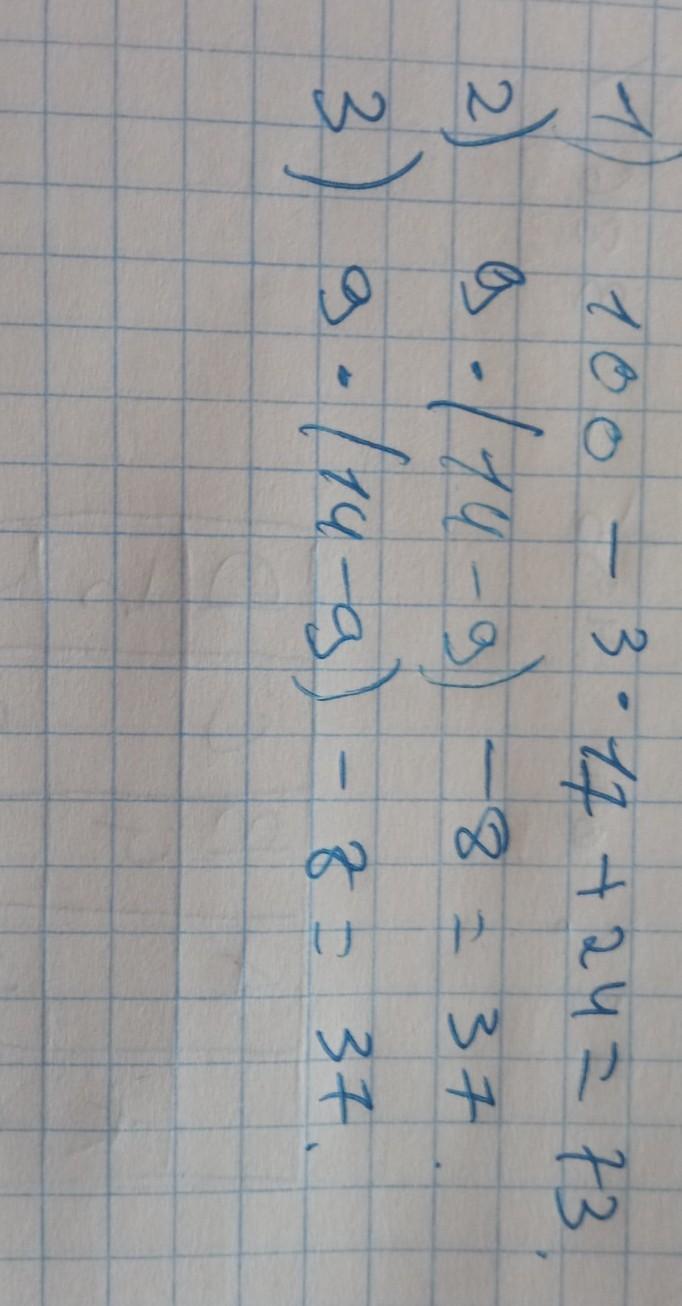 1) 100 - 3 · 17 + 24 = 73.
2) 9 · (14 - 9) - 8 = 37.
3) 9 · (14 - 9) - 8 = 37.